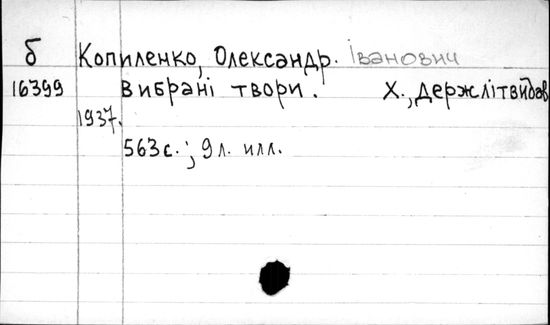 б Копиленко, Олександр. Іванович
16399 Вибрані твори. Х., Держлітвидав
1937.
563с.; 9л. илл.